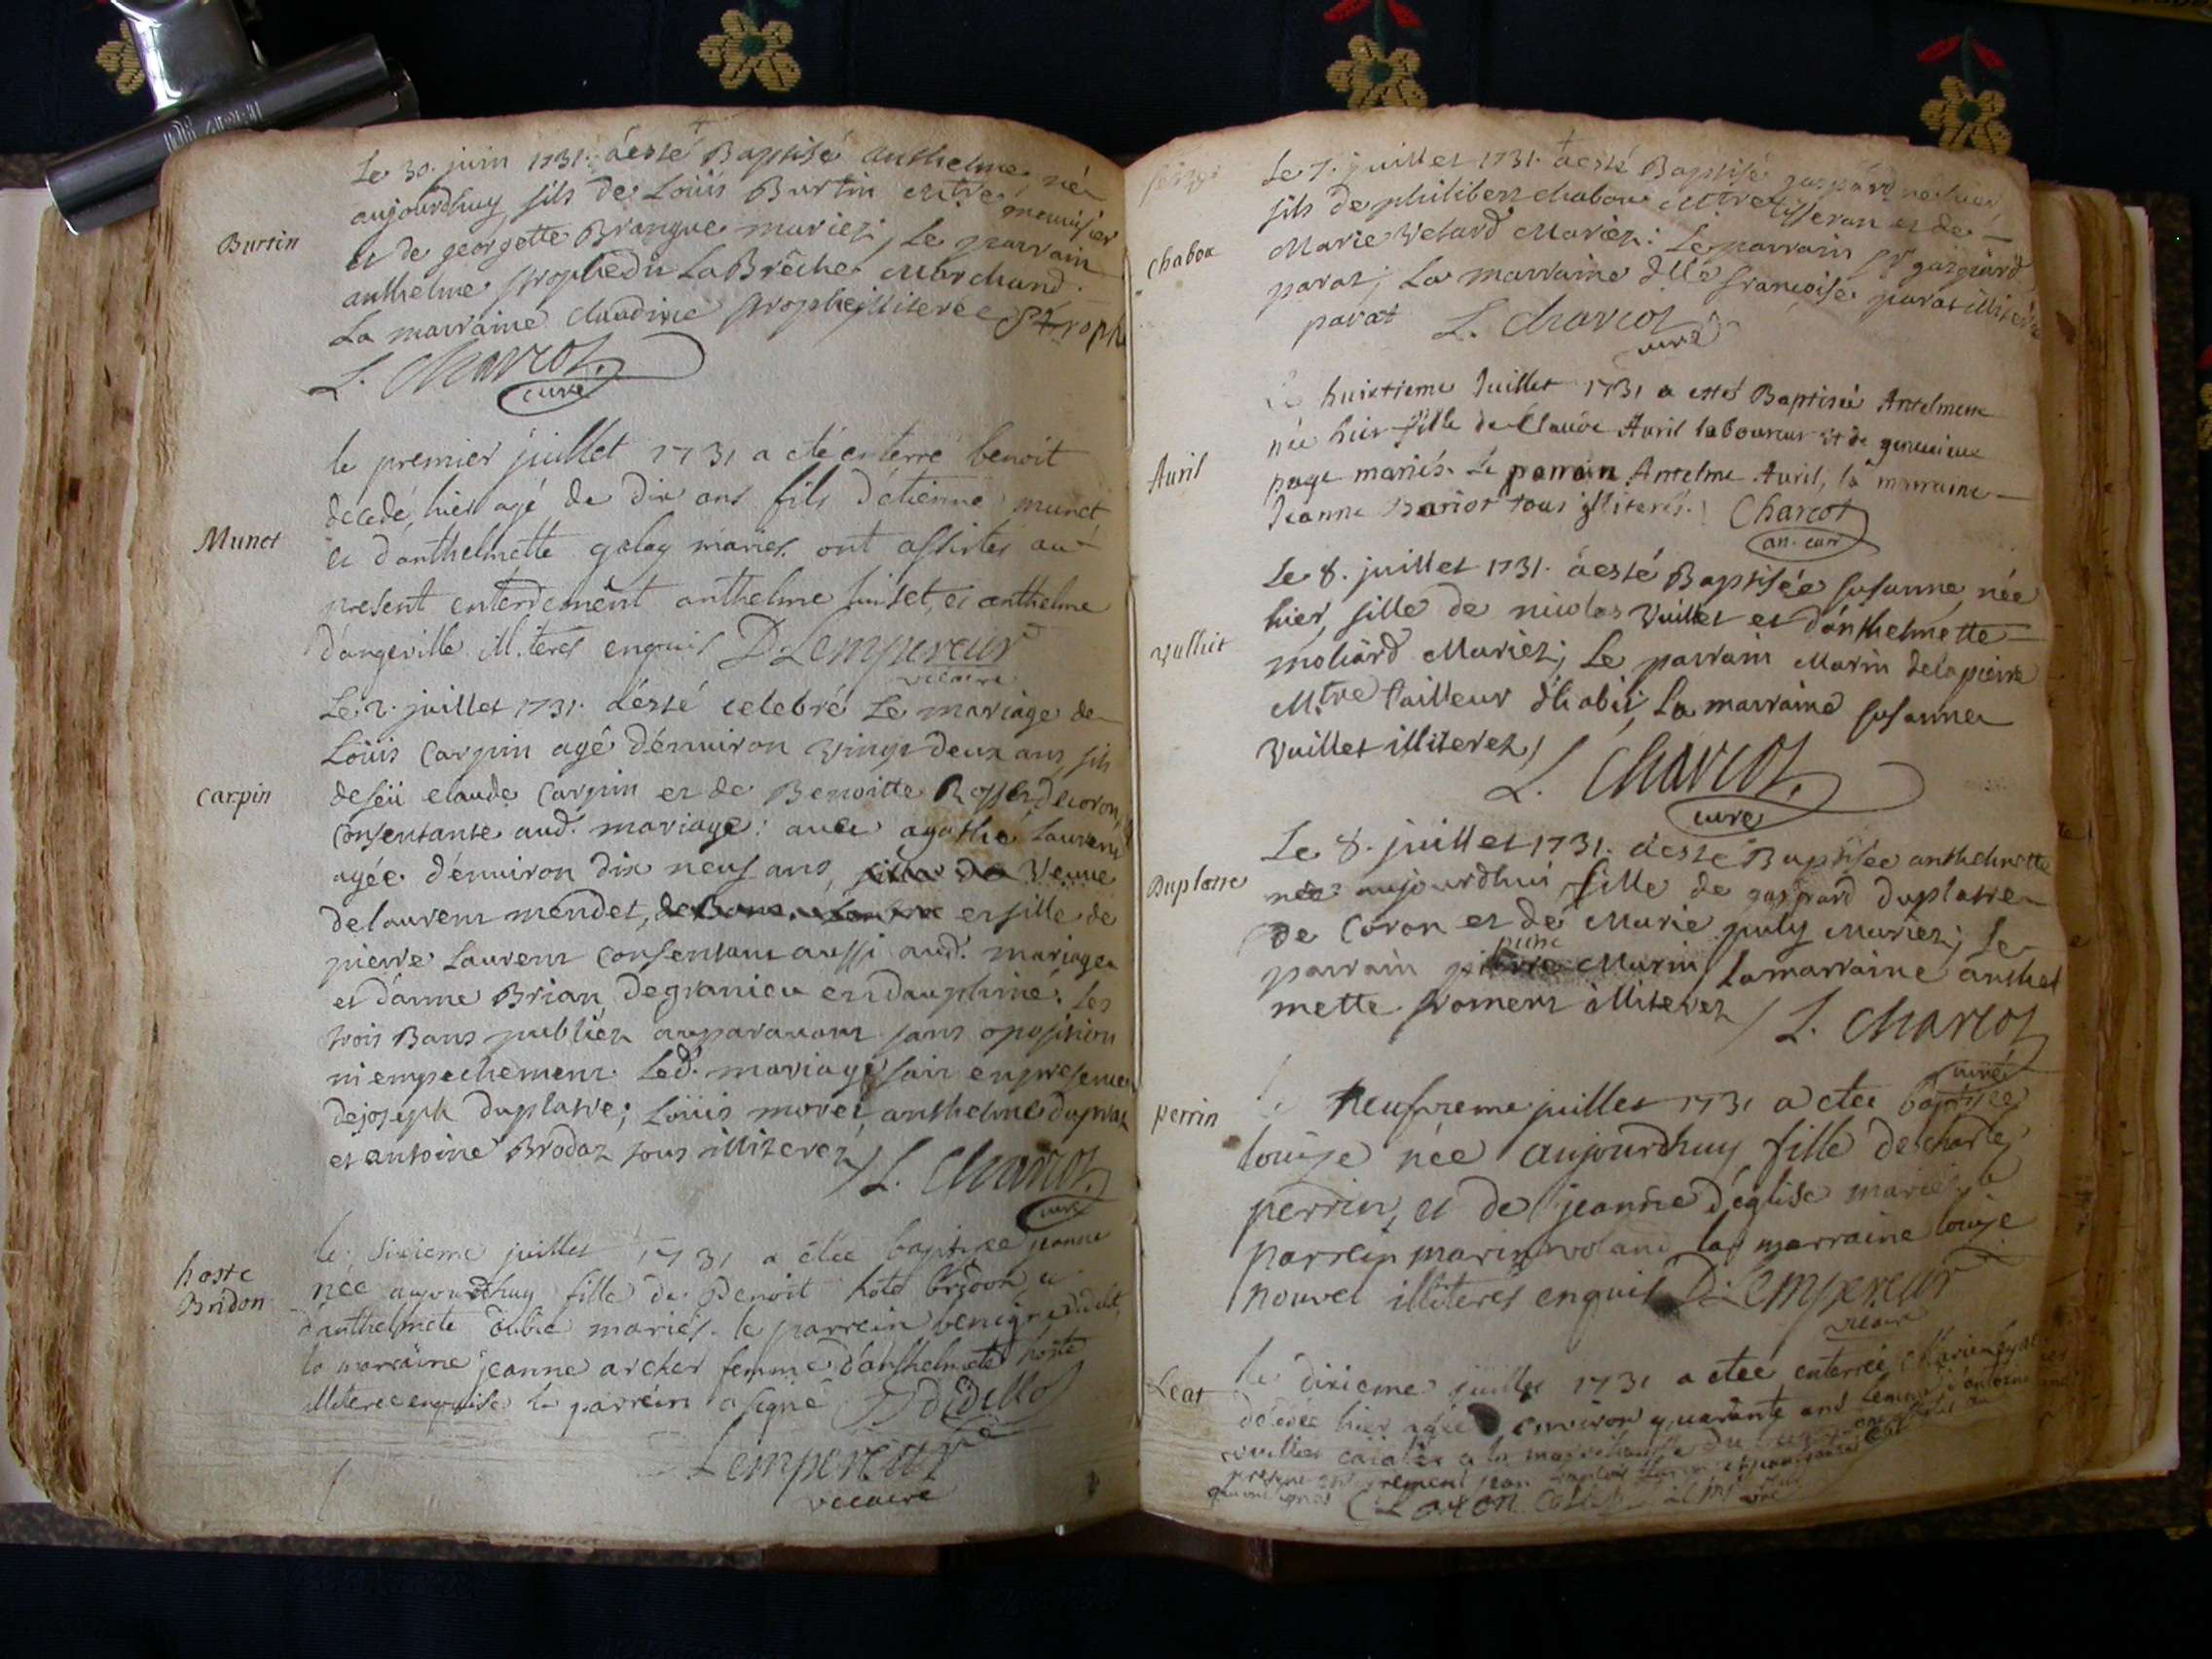 Le 30. juin 1731. à esté Baptisé anthelme, né
aujourdhuy fils de Loüis Burtin Mtre menuisier
et de georgette Brangue mariez; Le parrain
anthelme prophedit La Brêche Marchand.
La marraine Claudine prophe illiterée
L. Charcot
curé
Burtin
le premier juillet 1731 a eté enterre benoit
decedé, hier agé de dix ans fils d'etienne munet
et d'anthelmette golay mariez. ont assistes au
present enterrement anthelme et anthelme
dangeville illiterés enquis D Lempereur
vicaire
Munet
Le 2. juillet 1731. à esté celebré Le mariage de
Loüis Carpin agé d'énuiron vingt deux ans, fils
de feü claude Carpin et de Benoitte Rosset de coron,
Consentante aud. mariage: auec agathe Laurent
agée d'énuiron dix neuf ans, fille de Veuue
de laurent mendet, et fille de
pierre Laurent Consentant aussi aud. mariage
et d'anne Brian de granieu en dauphiné. Les
trois Bans publiez auparauant sans oposition
ni empechement. Led. mariage fait en presence
de joseph duplatre; Loüis morel, anthelme dupraz
et antoine Brodaz tous illiterez
L. Charcot
curé
Carpin
le sixieme juillet 1731 a étée baptisée jeanne
née aujourdhuy fille de Benoit hote bridon et
d'anthelmete mariés. le parrein benigne didelot
la marraine jeanne archer femme d'anthelmete hoste
illiteree enquise le parrein a signé Didello
Lempereur
viccaire
hoste
Bridon
Le 7. juillet 1731. à esté Baptisé gaspard né hier,
fils de philibert chabou Mtre tisseran et de
Marie Vetard Mariez: Le parrain Sr gaspard
parat; La marraine dlle françoise parat illiterée
parat L. Charcot
curé
Chabou
Le huictieme Juillet 1731 a esté Baptisée Antelmette
née hier fille de Claude Auril laboureur et de geneuieue
page mariés. Le parrain Antelme Auril, la marraine
Jeanne Bariot tous illiterés. Charcot
an. curé
Auril
Le 8. juillet 1731. à esté Baptisée susanne, née
hier, fille de nicolas Vuillet et d'anthelmette
moliard Mariez; Le parrain Marin delapierre
Mtre tailleur d'habit, La marraine susanne
Vuillet illiterez
L. Charcot
curé
Vulliet
Le 8. juillet 1731. à esté Baptisée anthelmette
née aujourdhui, fille de gaspard duplatre
de Coron et de Marie puly Mariez; Le
parrain pierre Marin, La marraine anthel
mette froment illiterez L. Charcot
curé
Duplatre
Le neufvieme juillet 1731 a etée baptisée
louise née aujourdhuy fille de charles
perrin, et de jeanne d'eglise mariés, le
parrein marin la marraine louise
nouvel illiterés enquis D Lempereur
vicaire
perrin
le dixieme juillet 1731 a etée enterrée
décédée hier agée environ quarante ans femme d'antoine
present enterrement jean
Leat